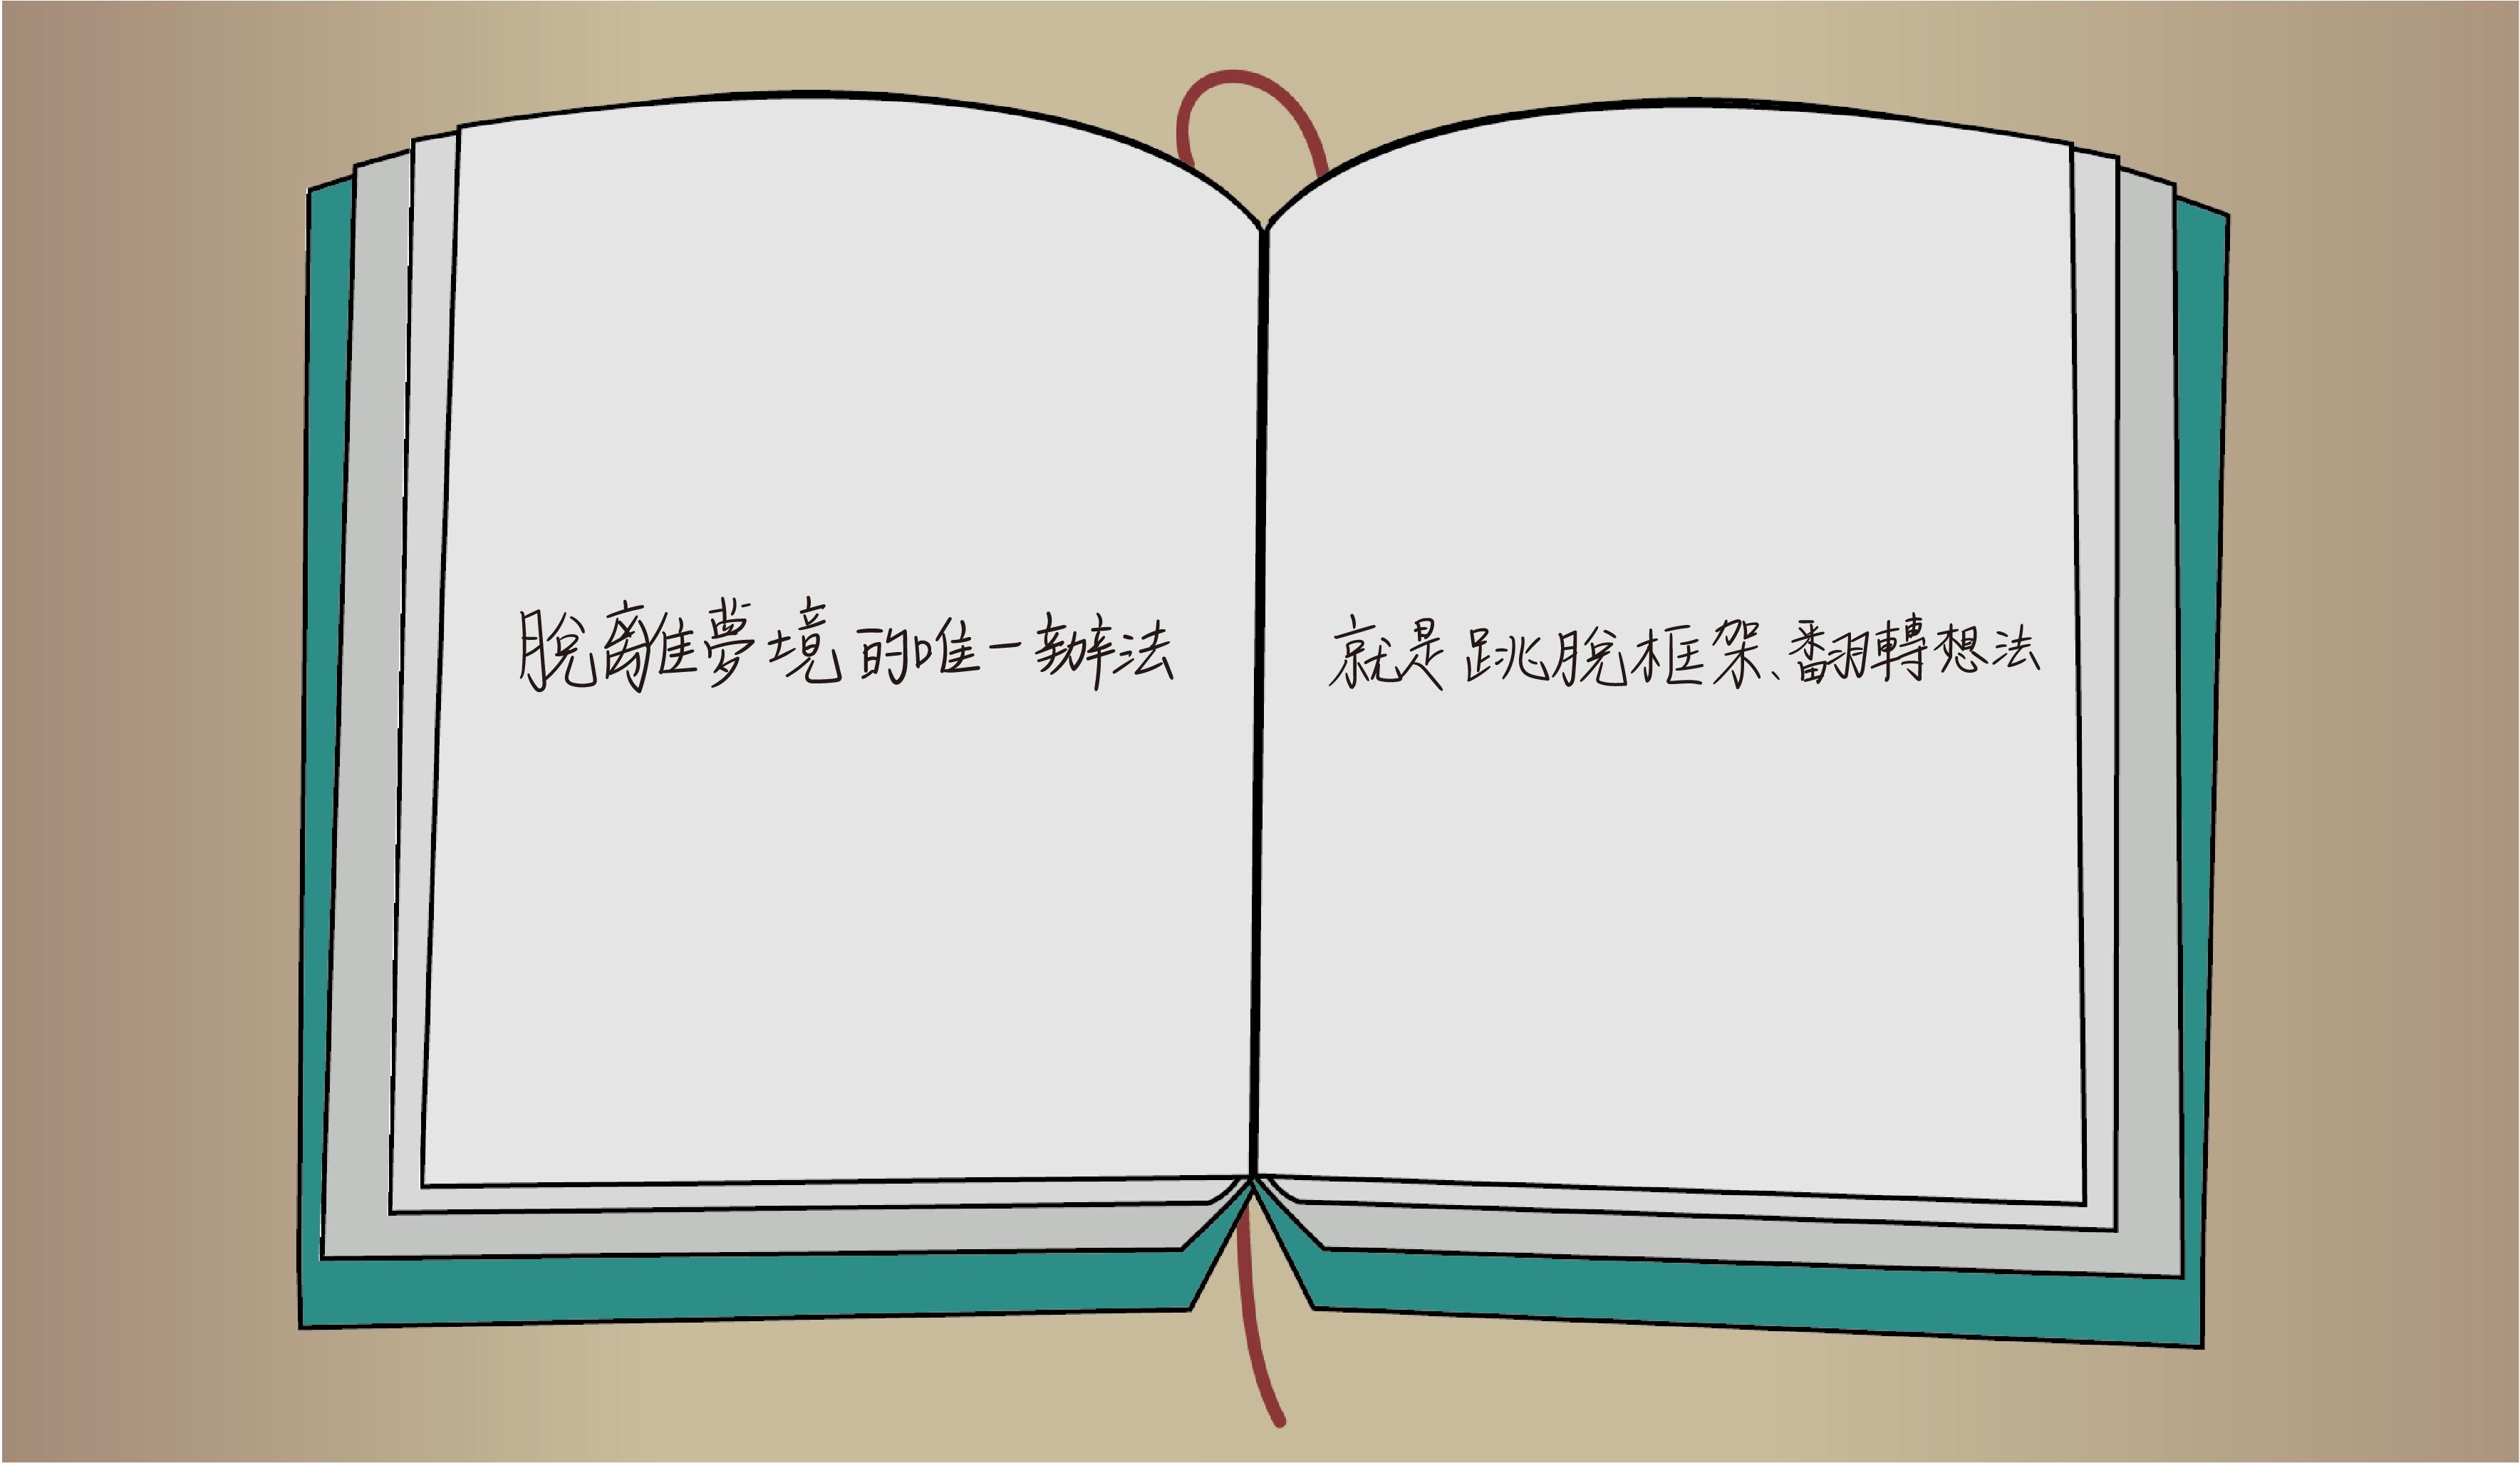 脫離夢境的唯一辦法
就是跳脫框架、翻轉想法